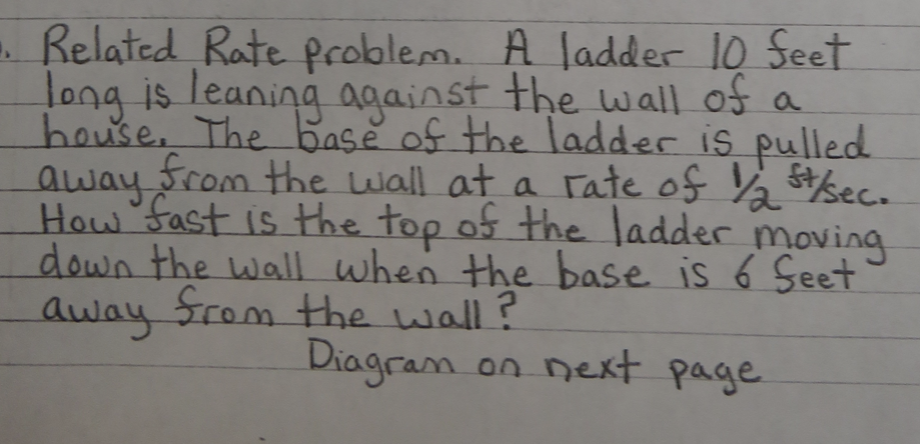 . Related Rate problem. A ladder 10 feet
long is leaning against the wall of a
house. The base of the ladder is pulled
away from the wall at a rate of 1/2 ft/sec.
How fast is the top of the ladder moving
down the wall when the base is 6 feet
away from the wall?
Diagram on next page